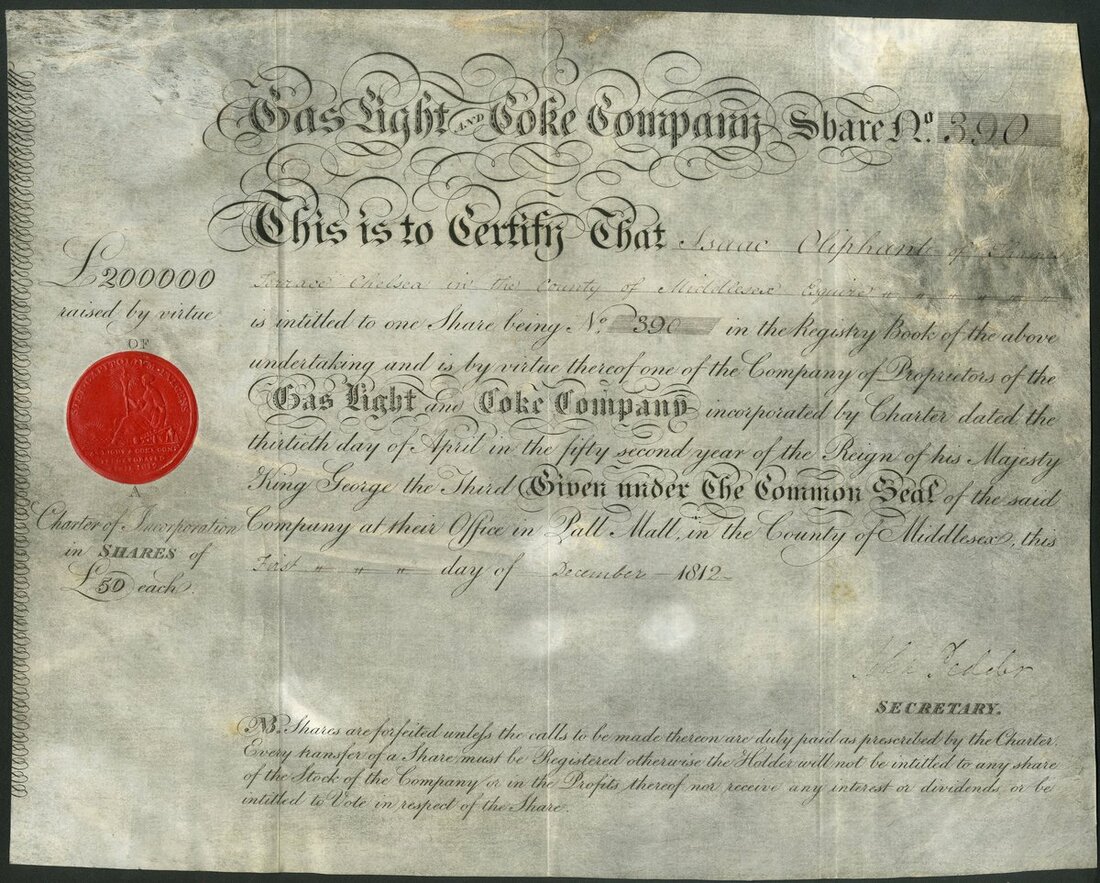 Gas Light AND Coke Company Share No. 390
This is to Certify That Isaac Oliphant of
Terrace Chelsea in the County of Middlesex Equire " " " " " "
is intitled to one Share being No. 390 in the Registry Book of the above
undertaking and is by virtue thereof one of the Company of Proprietors of the
Gas Light and Coke Company incorporated by Charter dated the
thirtieth day of April in the fifty second year of the Reign of his Majesty
King George the Third Given under The Common Seal of the said
Company at their Office in Pall Mall, in the County of Middlesex, this
First " " " day of December 1812
£200000
raised by virtue
OF
A
Charter of Incorporation
in SHARES of
£50 each.
SECRETARY.
NB. Shares are forfeited unless the calls to be made thereon are duly paid as prescribed by the Charter.
Every transfer of a Share must be Registered otherwise the Holder will not be intitled to any share
of the Stock of the Company or in the Profits thereof nor receive any interest or dividends or be
intitled to Vote in respect of the Share.